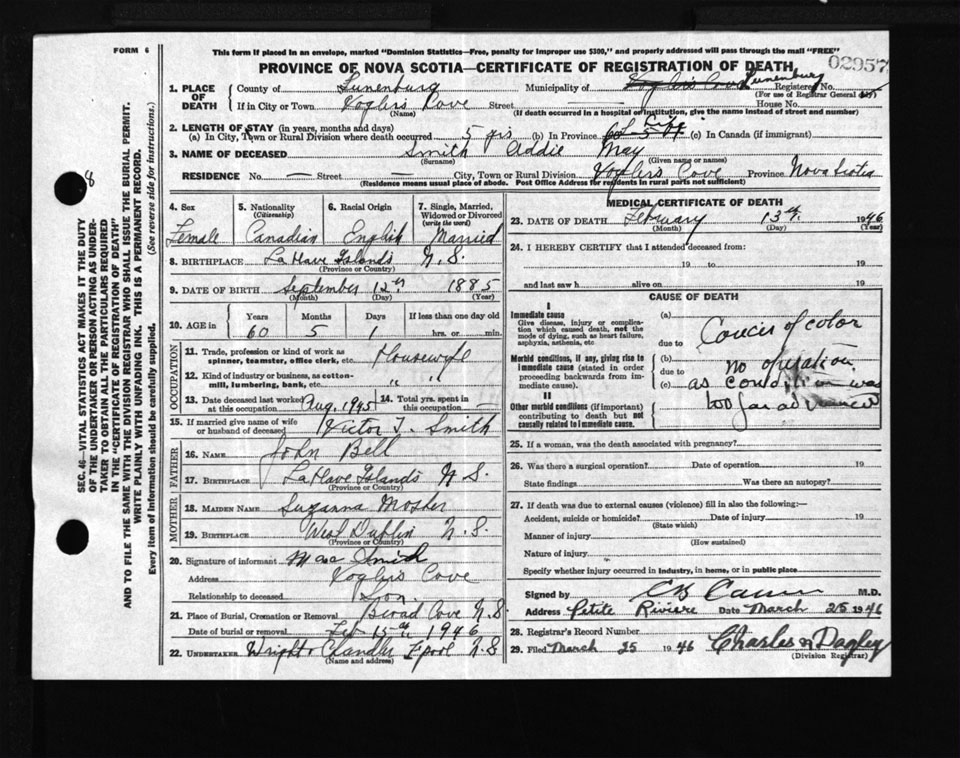 FORM 6
This form if placed in an envelope, marked "Dominion Statistics—Free, penalty for improper use $300," and properly addressed will pass through the mail "FREE"
PROVINCE OF NOVA SCOTIA—CERTIFICATE OF REGISTRATION OF DEATH
02957
1. PLACE OF DEATH
County of Lunenburg Municipality of Voglers Cove Lunenburg Registered No.
(For use of Registrar General only)
If in City or Town Voglers Cove Street — House No.
(Name) (If death occurred in a hospital or institution, give the name instead of street and number)
2. LENGTH OF STAY (in years, months and days)
(a) In City, Town or Rural Division where death occurred 5 yrs (b) In Province Life (c) In Canada (if immigrant)
3. NAME OF DECEASED Smith Addie May
(Surname) (Given name or names)
RESIDENCE No. — Street — City, Town or Rural Division Voglers Cove Province Nova Scotia
(Residence means usual place of abode. Post Office Address for residents in rural parts not sufficient)
4. Sex 5. Nationality (Citizenship) 6. Racial Origin 7. Single, Married, Widowed or Divorced (write the word)
Female Canadian English Married
8. BIRTHPLACE La Have Islands N.S.
(Province or Country)
9. DATE OF BIRTH September 12th 1885
(Month) (Day) (Year)
10. AGE in Years Months Days If less than one day old
60 5 1 hrs. or min.
OCCUPATION
11. Trade, profession or kind of work as spinner, teamster, office clerk, etc. Housewife
12. Kind of industry or business, as cotton-mill, lumbering, bank, etc. " "
13. Date deceased last worked at this occupation Aug. 1945 14. Total yrs. spent in this occupation —
15. If married give name of wife or husband of deceased Victor T. Smith
FATHER
16. NAME John Bell
17. BIRTHPLACE LaHave Islands N.S.
(Province or Country)
MOTHER
18. MAIDEN NAME Suzanna Mosher
19. BIRTHPLACE West Dublin N.S.
(Province or Country)
20. Signature of informant Mac Smith
Address Voglers Cove
Relationship to deceased Son
21. Place of Burial, Cremation or Removal Broad Cove N.S.
Date of burial or removal Feb 15th 1946
22. UNDERTAKER Wright & Chandler L'pool N.S
(Name and address)
MEDICAL CERTIFICATE OF DEATH
23. DATE OF DEATH February 13th 1946
(Month) (Day) (Year)
24. I HEREBY CERTIFY that I attended deceased from:
19 to 19
and last saw h alive on 19
CAUSE OF DEATH
I
Immediate cause
Give disease, injury or complication which caused death, not the mode of dying, such as heart failure, asphyxia, asthenia, etc.
(a) Cancer of colon
due to
Morbid conditions, if any, giving rise to immediate cause (stated in order proceeding backwards from immediate cause).
(b) no operation
due to
(c) as condition was
too far advanced
II
Other morbid conditions (if important) contributing to death but not causally related to immediate cause.
25. If a woman, was the death associated with pregnancy?
26. Was there a surgical operation? Date of operation 19
State findings Was there an autopsy?
27. If death was due to external causes (violence) fill in also the following:—
Accident, suicide or homicide? Date of injury 19
(State which)
Manner of injury
(How sustained)
Nature of injury
Specify whether injury occurred in industry, in home, or in public place
Signed by M.D.
Address Petite Riviere Date March 25 1946
28. Registrar's Record Number
29. Filed March 25 1946 Charles Dagley
(Division Registrar)
SEC. 46—VITAL STATISTICS ACT MAKES IT THE DUTY
OF THE UNDERTAKER OR PERSON ACTING AS UNDER-
TAKER TO OBTAIN ALL THE PARTICULARS REQUIRED
IN THE "CERTIFICATE OF REGISTRATION OF DEATH"
AND TO FILE THE SAME WITH THE DIVISION REGISTRAR WHO SHALL ISSUE THE BURIAL PERMIT.
WRITE PLAINLY WITH UNFADING INK. THIS IS A PERMANENT RECORD.
Every item of information should be carefully supplied. (See reverse side for instructions.)
8